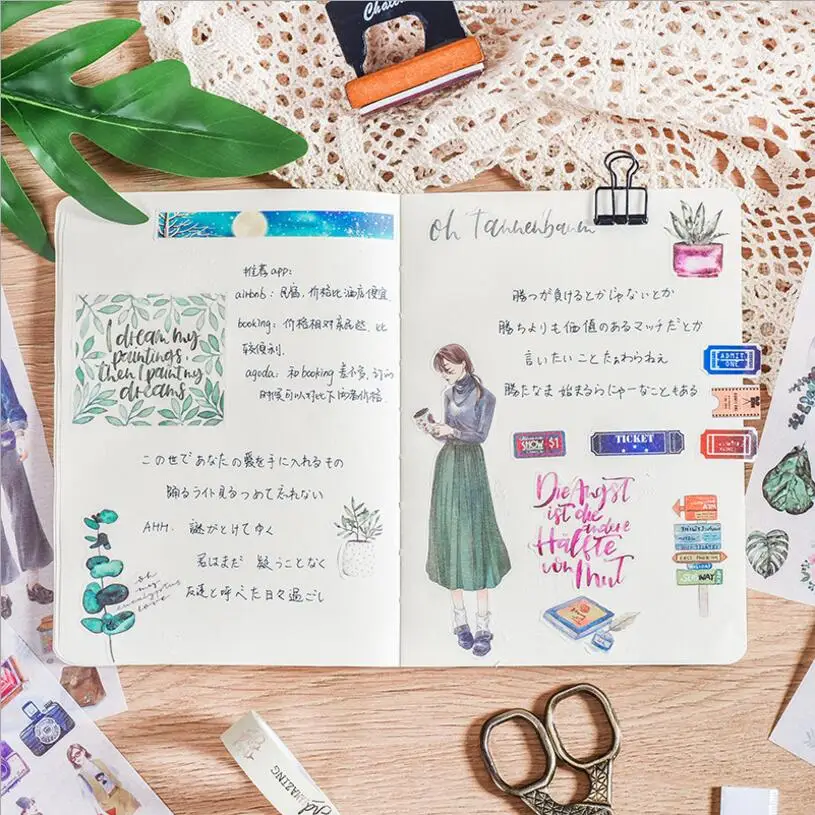 I dream my
paintings,
then I paint my
dreams
推荐app:
airbnb: 民宿, 价格比酒店便宜
booking: 价格相对亲民些, 比
较便利.
agoda: 和booking差不多, 订的
时候可以对比下两者价格.
この世であなたの愛を手に入れるもの
踊るライト見るつめて忘れない
AHH. 謎がとけてゆく
君はまだ 疑うことなく
友達と呼べた日々過ごし
oh
my
eucalyptus
love
oh Tannenbaum
勝つが負けるとかじゃないとか
勝ちよりも価値のあるマッチだとか
言いたいことたぁわらねぇ
勝たなま始まるらにゃーなこともある
ADMIT
ONE
SHOW $1
TICKET
Die Angst
ist die
andere
Hälfte
von Mut
HOLIDAY
SUBWAY
AMAZING